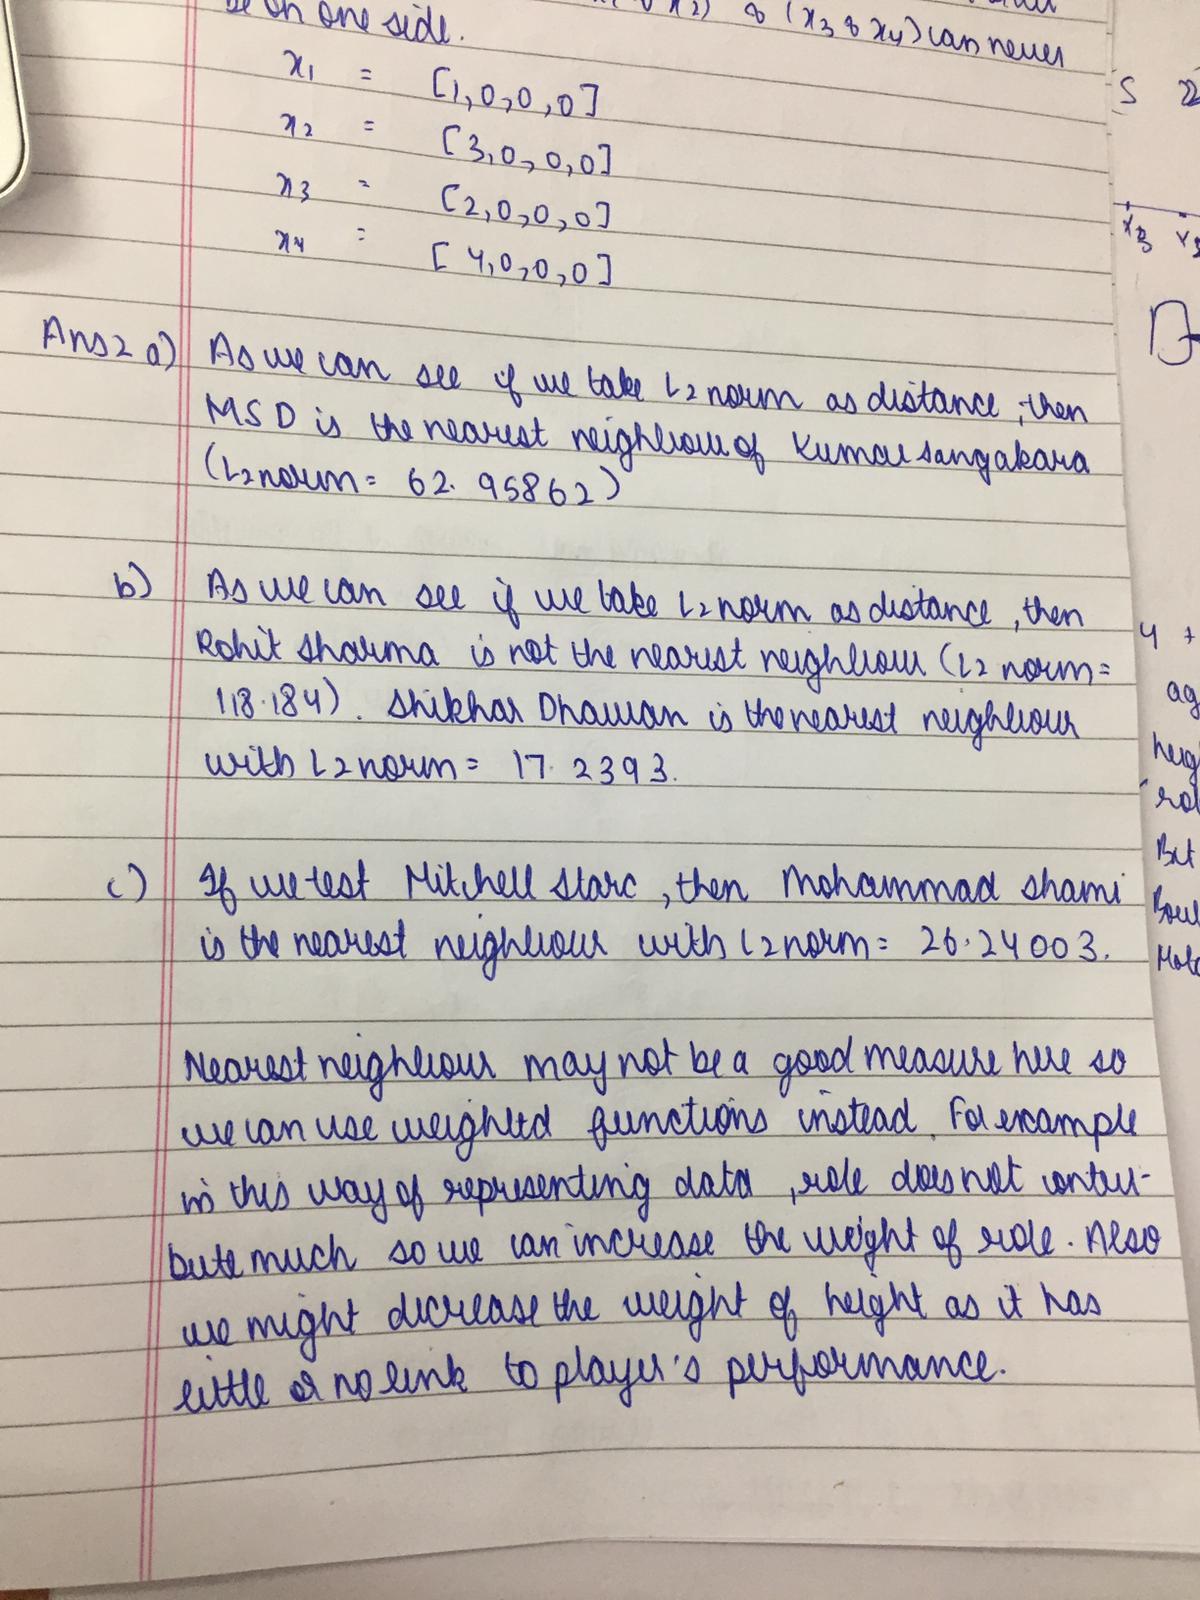 be on one side.
x2) & (x3 & x4) can never
x1 = [1,0,0,0]
x2 = [3,0,0,0]
x3 = [2,0,0,0]
x4 = [4,0,0,0]
Ans 2 a) As we can see if we take L2 norm as distance, then
MSD is the nearest neighbour of Kumar sangakara
(L2 norm = 62.95862)
b) As we can see if we take L2 norm as distance, then
Rohit Sharma is not the nearest neighbour (L2 norm =
118.184). Shikhar Dhawan is the nearest neighbour
with L2 norm = 17.2393.
c) If we test Mitchell Starc, then Mohammad Shami
is the nearest neighbour with L2 norm = 26.24003.
Nearest neighbour may not be a good measure here so
we can use weighted functions instead. For example
in this way of representing data, role does not contri-
bute much so we can increase the weight of role. Also
we might decrease the weight of height as it has
little or no link to player's performance.
S
x3
4 +
ag
heig
rol
Bat
Bowl